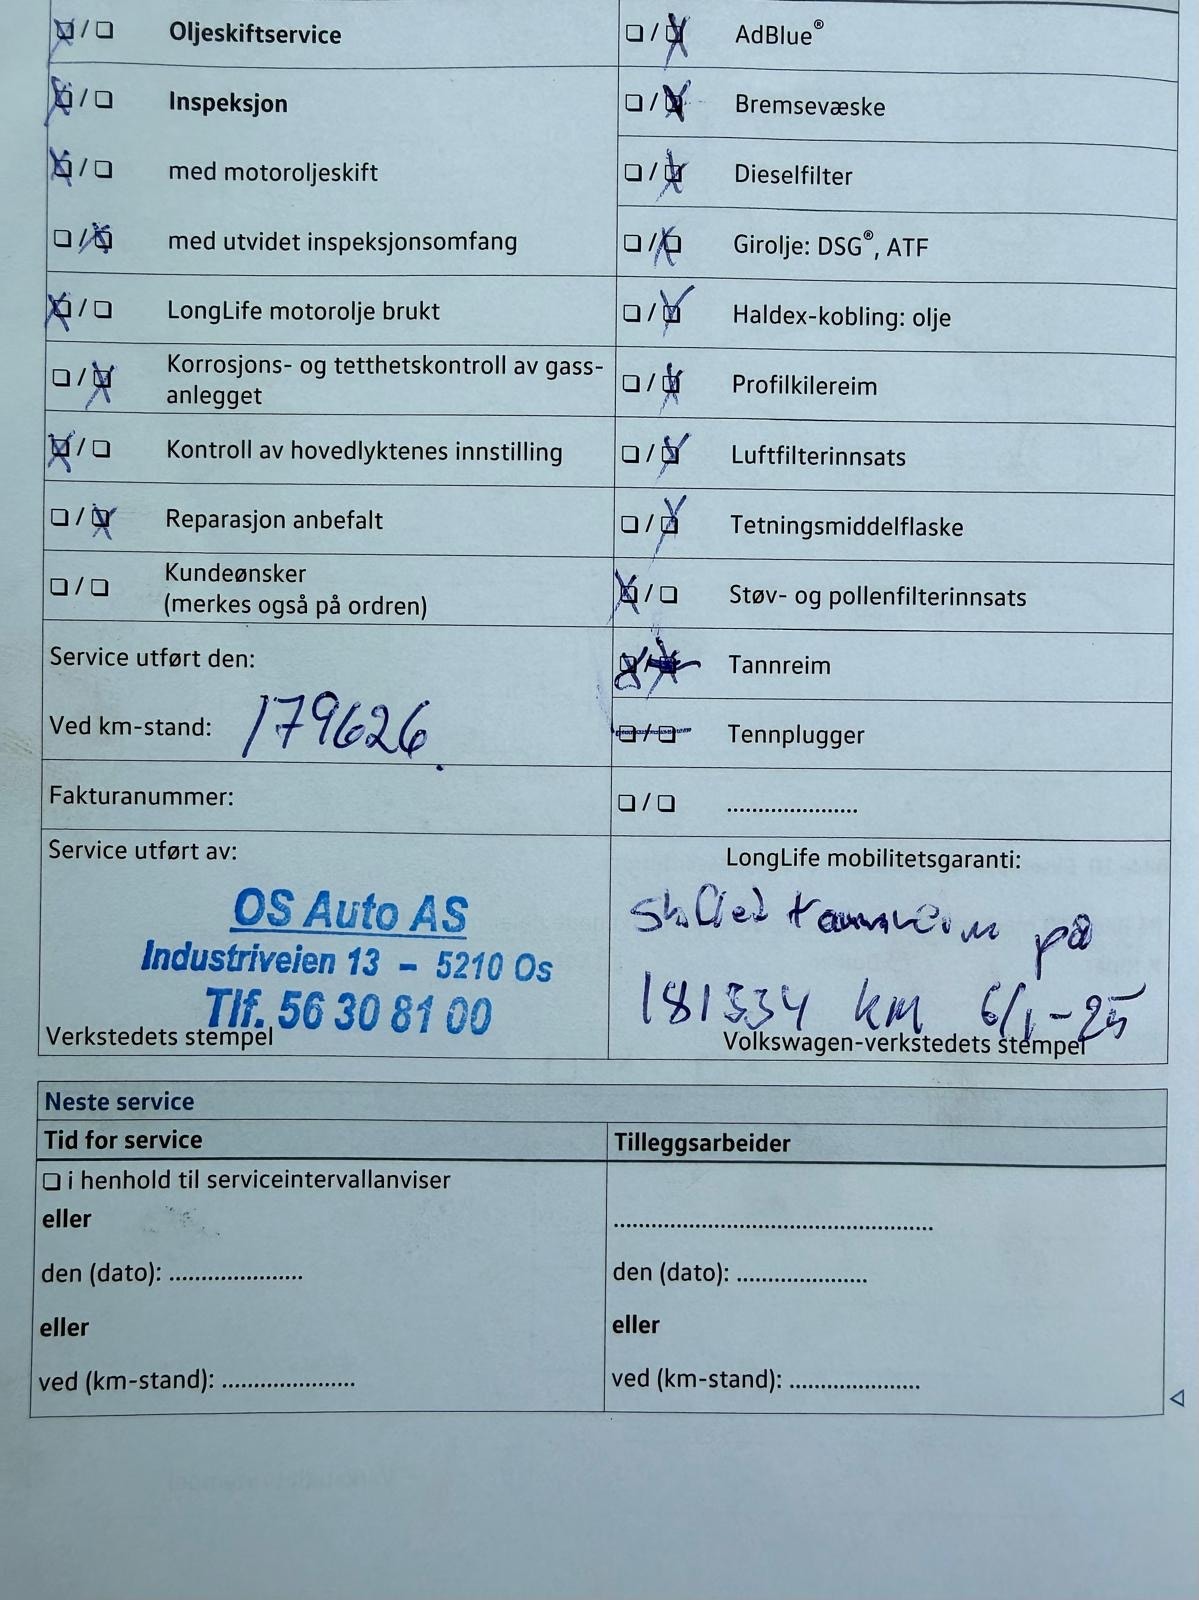 ☒ / ☐ Oljeskiftservice
☒ / ☐ Inspeksjon
☒ / ☐ med motoroljeskift
☐ / ☒ med utvidet inspeksjonsomfang
☒ / ☐ LongLife motorolje brukt
☐ / ☒ Korrosjons- og tetthetskontroll av gass-
anlegget
☒ / ☐ Kontroll av hovedlyktenes innstilling
☐ / ☒ Reparasjon anbefalt
☐ / ☐ Kundeønsker
(merkes også på ordren)
Service utført den:
Ved km-stand: 179626.
Fakturanummer:
Service utført av:
OS Auto AS
Industriveien 13 – 5210 Os
Tlf. 56 30 81 00
Verkstedets stempel
☐ / ☒ AdBlue®
☐ / ☒ Bremsevæske
☐ / ☒ Dieselfilter
☐ / ☒ Girolje: DSG®, ATF
☐ / ☒ Haldex-kobling: olje
☐ / ☒ Profilkilereim
☐ / ☒ Luftfilterinnsats
☐ / ☒ Tetningsmiddelflaske
☒ / ☐ Støv- og pollenfilterinnsats
☒ / ☒ Tannreim
☐ / ☐ Tennplugger
☐ / ☐ ....................
LongLife mobilitetsgaranti:
tannreim på
181334 km 6/1-25
Volkswagen-verkstedets stempel
Neste service
Tid for service
☐ i henhold til serviceintervallanviser
eller
den (dato): ....................
eller
ved (km-stand): ....................
Tilleggsarbeider
................................................
den (dato): ....................
eller
ved (km-stand): ....................